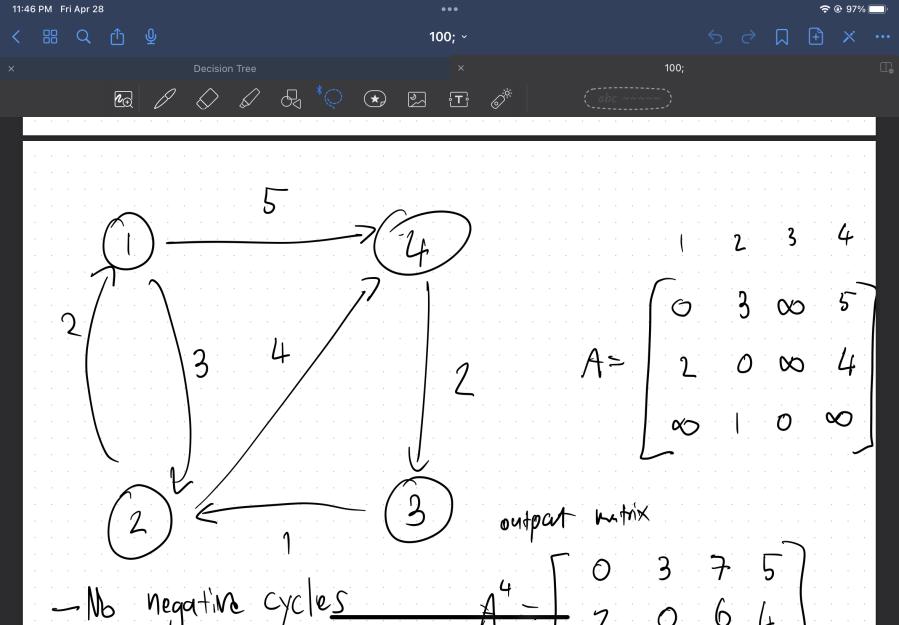 11:46 PM Fri Apr 28
97%
100;
Decision Tree
100;
abc
5
1
4
2
3
4
2
2
3
1
1 2 3 4
0 3 ∞ 5
A= 2 0 ∞ 4
∞ 1 0 ∞
output matrix
0 3 7 5
A⁴ = 2 0 6 4
- No negative cycles